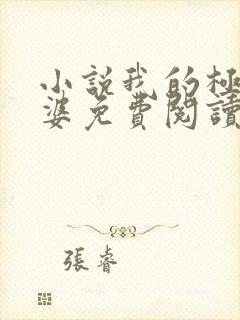 小說我的極
婆免費閱讀
張睿